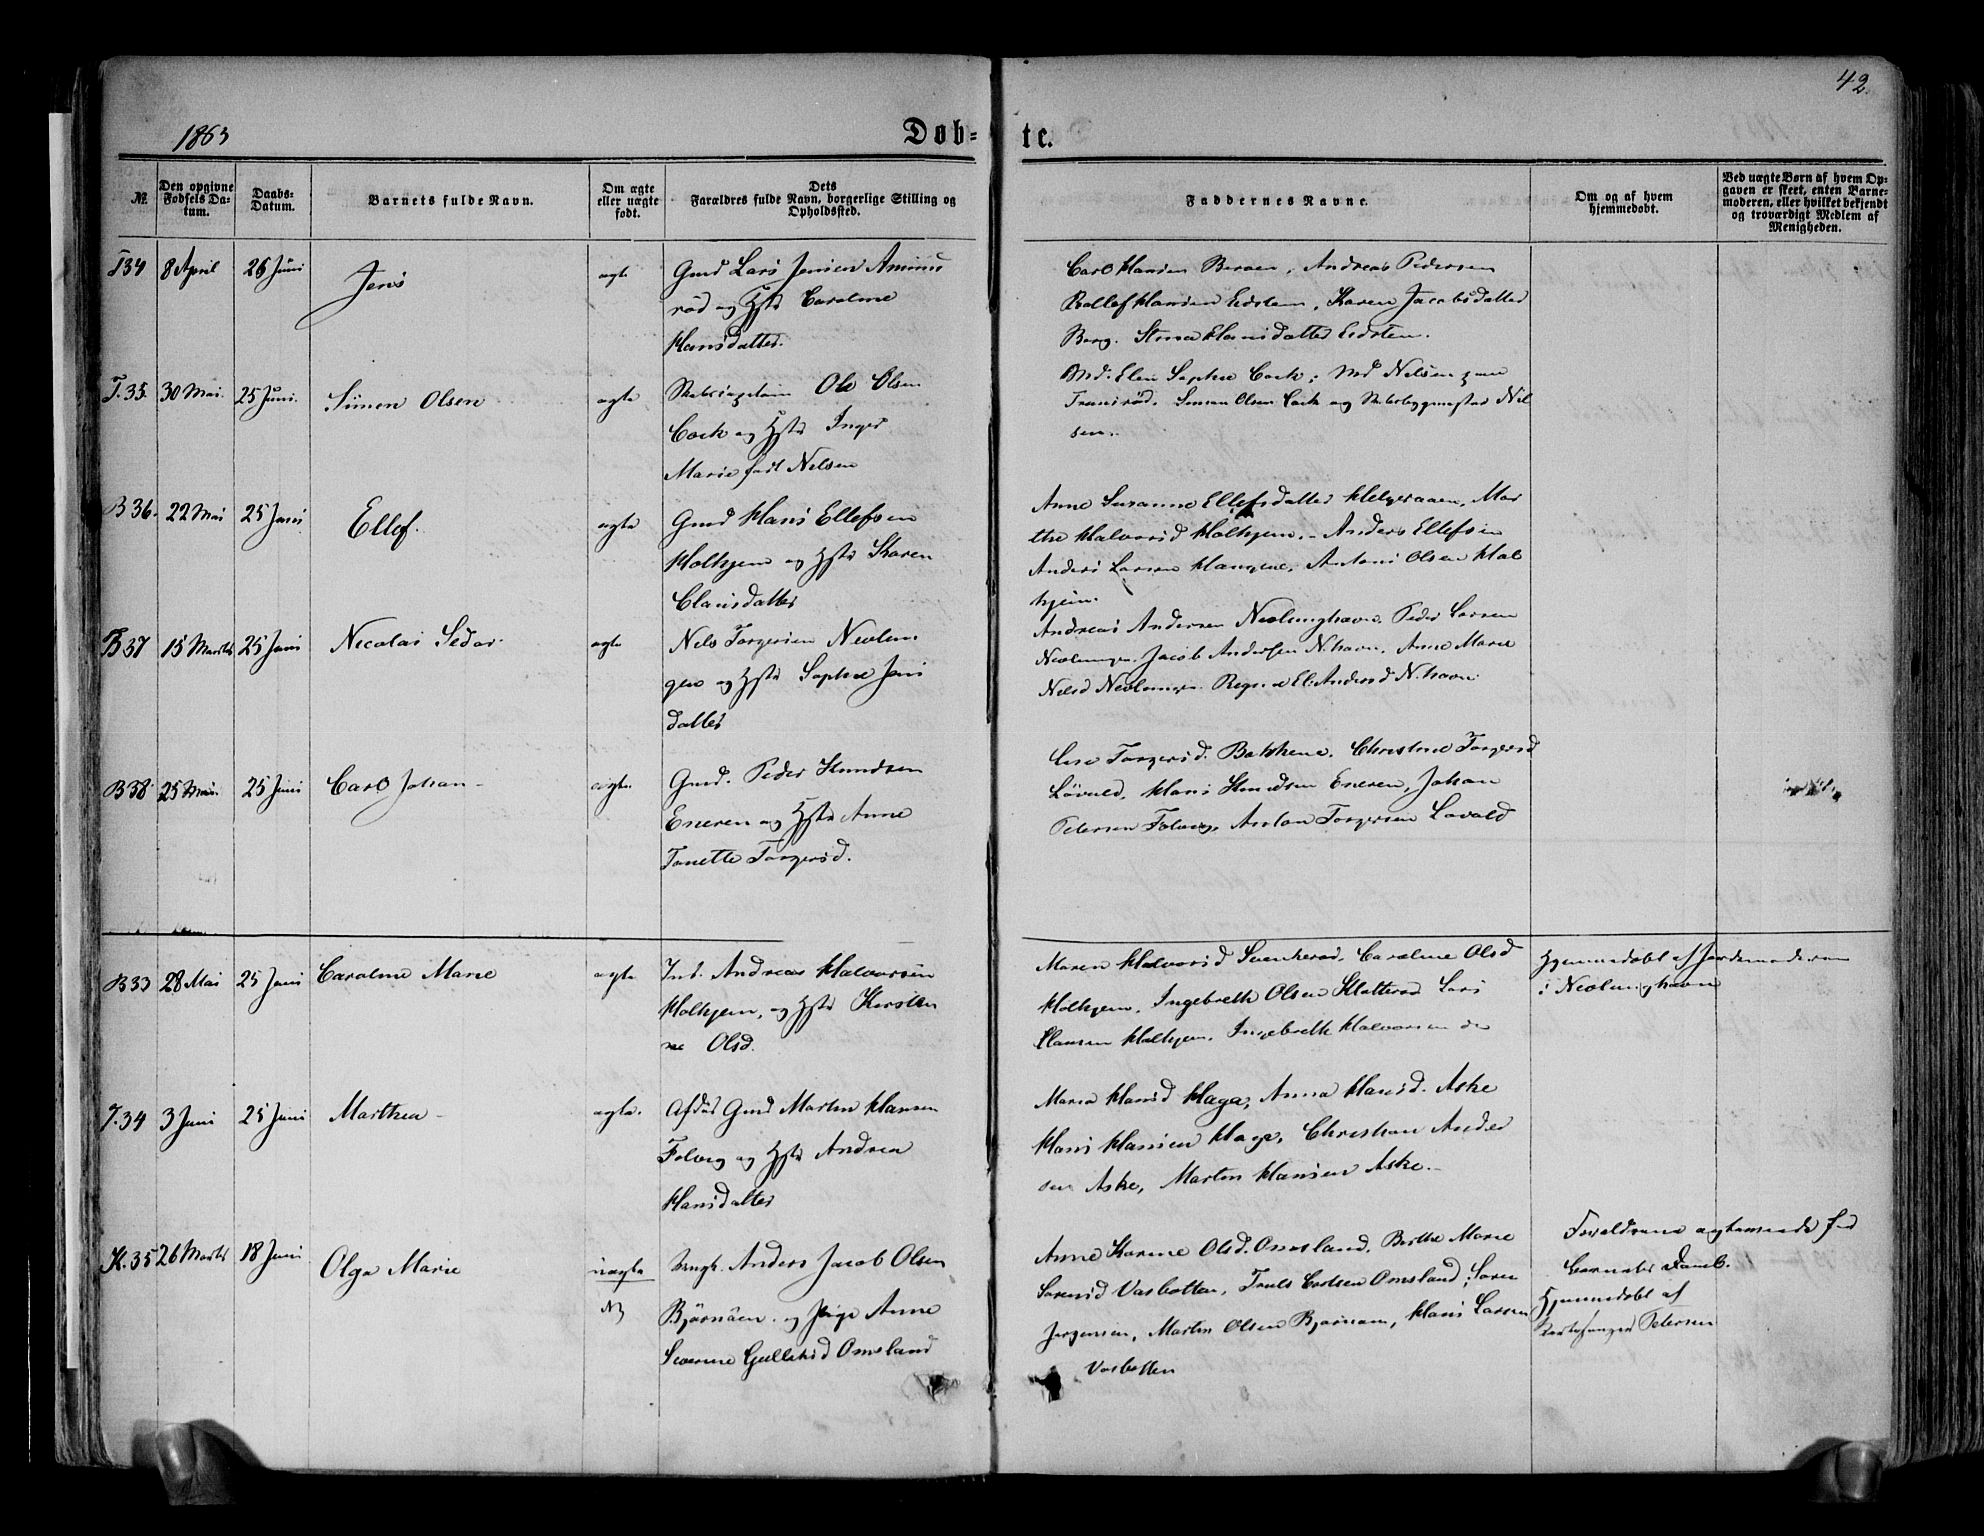 42
1863
Døb-
te.
№
Den opgivne
Fødsels Da-
tum.
Daabs-
Datum.
Barnets fulde Navn.
Om ægte
eller uægte
født.
Dets
Forældres fulde Navn, borgerlige Stilling og
Opholdssted.
Faddernes Navne.
Om og af hvem
hjemmedøbt.
Ved uægte Børn af hvem Op-
gaven er skeet, enten Barne-
moderen, eller hvilket bekjendt
og troværdigt Medlem af
Menigheden.
T34 8 April 26 Juni Jens ægte Gmd Lars Jensen Aminds
rød og Hst Caroline
Hansdatter.
Carl Hansen Bergen, Andreas Pedersen
Rollef Hansen Eidsten, Karen Jacobsdatter
Berg. Stina Hansdatter Eidsten.
T.35. 30 Mai. 25 Juni. Simen Olsen ægte Skibscaptein Ole Olsen
Cock og Hst Inger
Marie født Nelsen
Md. Elen Sophie Cock; Md Nelsen
Simen Olsen Cock og Skibsbygmester Nil
sen.
B 36. 22 Mai 25 Juni Ellef. ægte Gmd Hans Ellefsen
Holhjem og Hst Karen
Clausdatter
Anne Susanne Ellefsdatter Helgeraaen, Mar
the Halvorsd Holhjem. Anders Ellefsen
Anders Larsen Haugene, Antoni Olsen Hol
hjem.
B 37 15 Marts 25 Juni Nicolai Sedor ægte Nels Torgersen Nevlun
gen og Hst Sophie Jens
datter
Andreas Andersen Nevlunghavn. Peder Larsen
Nevlungen. Jacob Andersen N.havn. Anne Marie
Nelsd Nevlungen. Regine El. Andersd N.havn
B 38 25 Mai. 25 Juni Carl Johan ægte. Gmd. Peder Knudsen
Eneren og Hst Anne
Tonette Torgersd.
Lise Torgersd. Bakkene. Christine Torgersd
Løvald, Hans Knudsen Eneren, Johan
Petersen Folveg, Anton Torgersen Lovald
B33 28 Mai 25 Juni Caroline Marie ægte Ind. Andreas Halvorsen
Holhjem, og Hst Kirstin
ne Olsd.
Maren Halvorsd Svenkerød, Caroline Olsd
Holhjem, Ingebreth Olsen Klatterød Lars
Clausen Holhjem. Ingebreth Halvorsen do
Hjemmedøbt af Jordemoderen
i Nevlunghavn
T.34 3 Juni 25 Juni Marthea ægte. Afdøde Gmd Martin Hansen
Folveg og Hst Andrea
Hansdatter
Maria Hansd Haga, Anna Hansd. Aske
Hans Hansen Hage, Christian Ander
sen Aske, Martin Hansen Aske.
K.35 26 Marts 18 Juni Olga Marie uægte Ungk. Anders Jacob Olsen
NB Bjørnøen. og Pige Anne
Severine Gulliksd Omsland
Anne Karine Olsd. Omsland, Berthe Marie
Sørensd Vasbotten, Truls Carlsen Omsland; Søren
Jørgensen, Martin Olsen Bjørnøen, Hans Larsen
Vasbotten
Forældrene ægtemeede før
Barnets Daab.
Hjemmedøbt af
Petersen